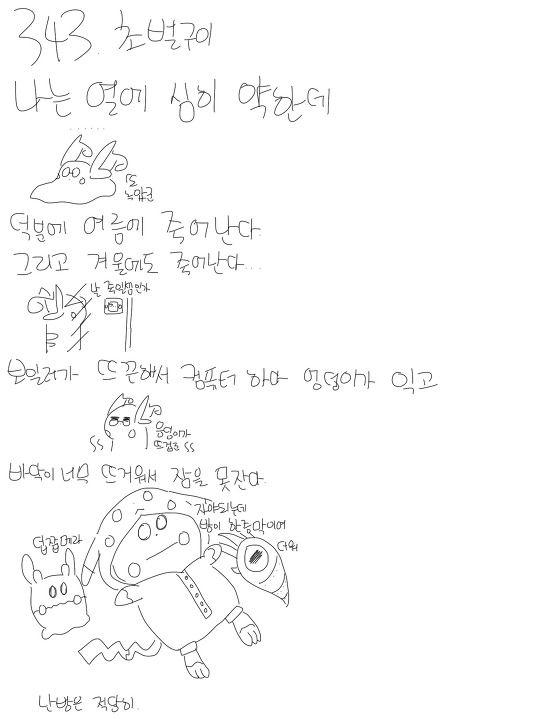 343. 초벌구이
나는 열에 심히 약한데
......
또
녹았군
덕분에 여름에 죽어난다.
그리고 겨울에도 죽어난다...
날 죽일셈인가
보일러가 뜨끈해서 컴퓨터 하다 엉덩이가 익고
응덩이가
뜨겁군
바닥이 너무 뜨거워서 잠을 못잔다.
자야되는데
방이 한증막이여
더워
덥잖메라
난방은 적당히.